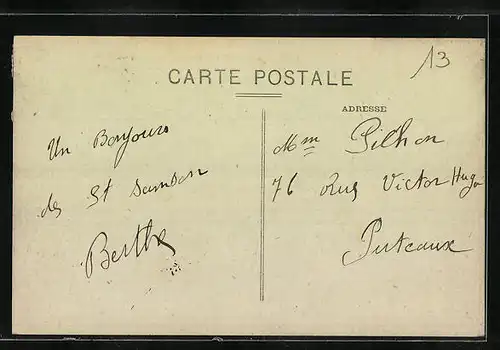 13
CARTE POSTALE
ADRESSE
Un Bonjour
de St Samson
Berthe
Mme Pilhon
76 Rue Victor Hugo
Puteaux